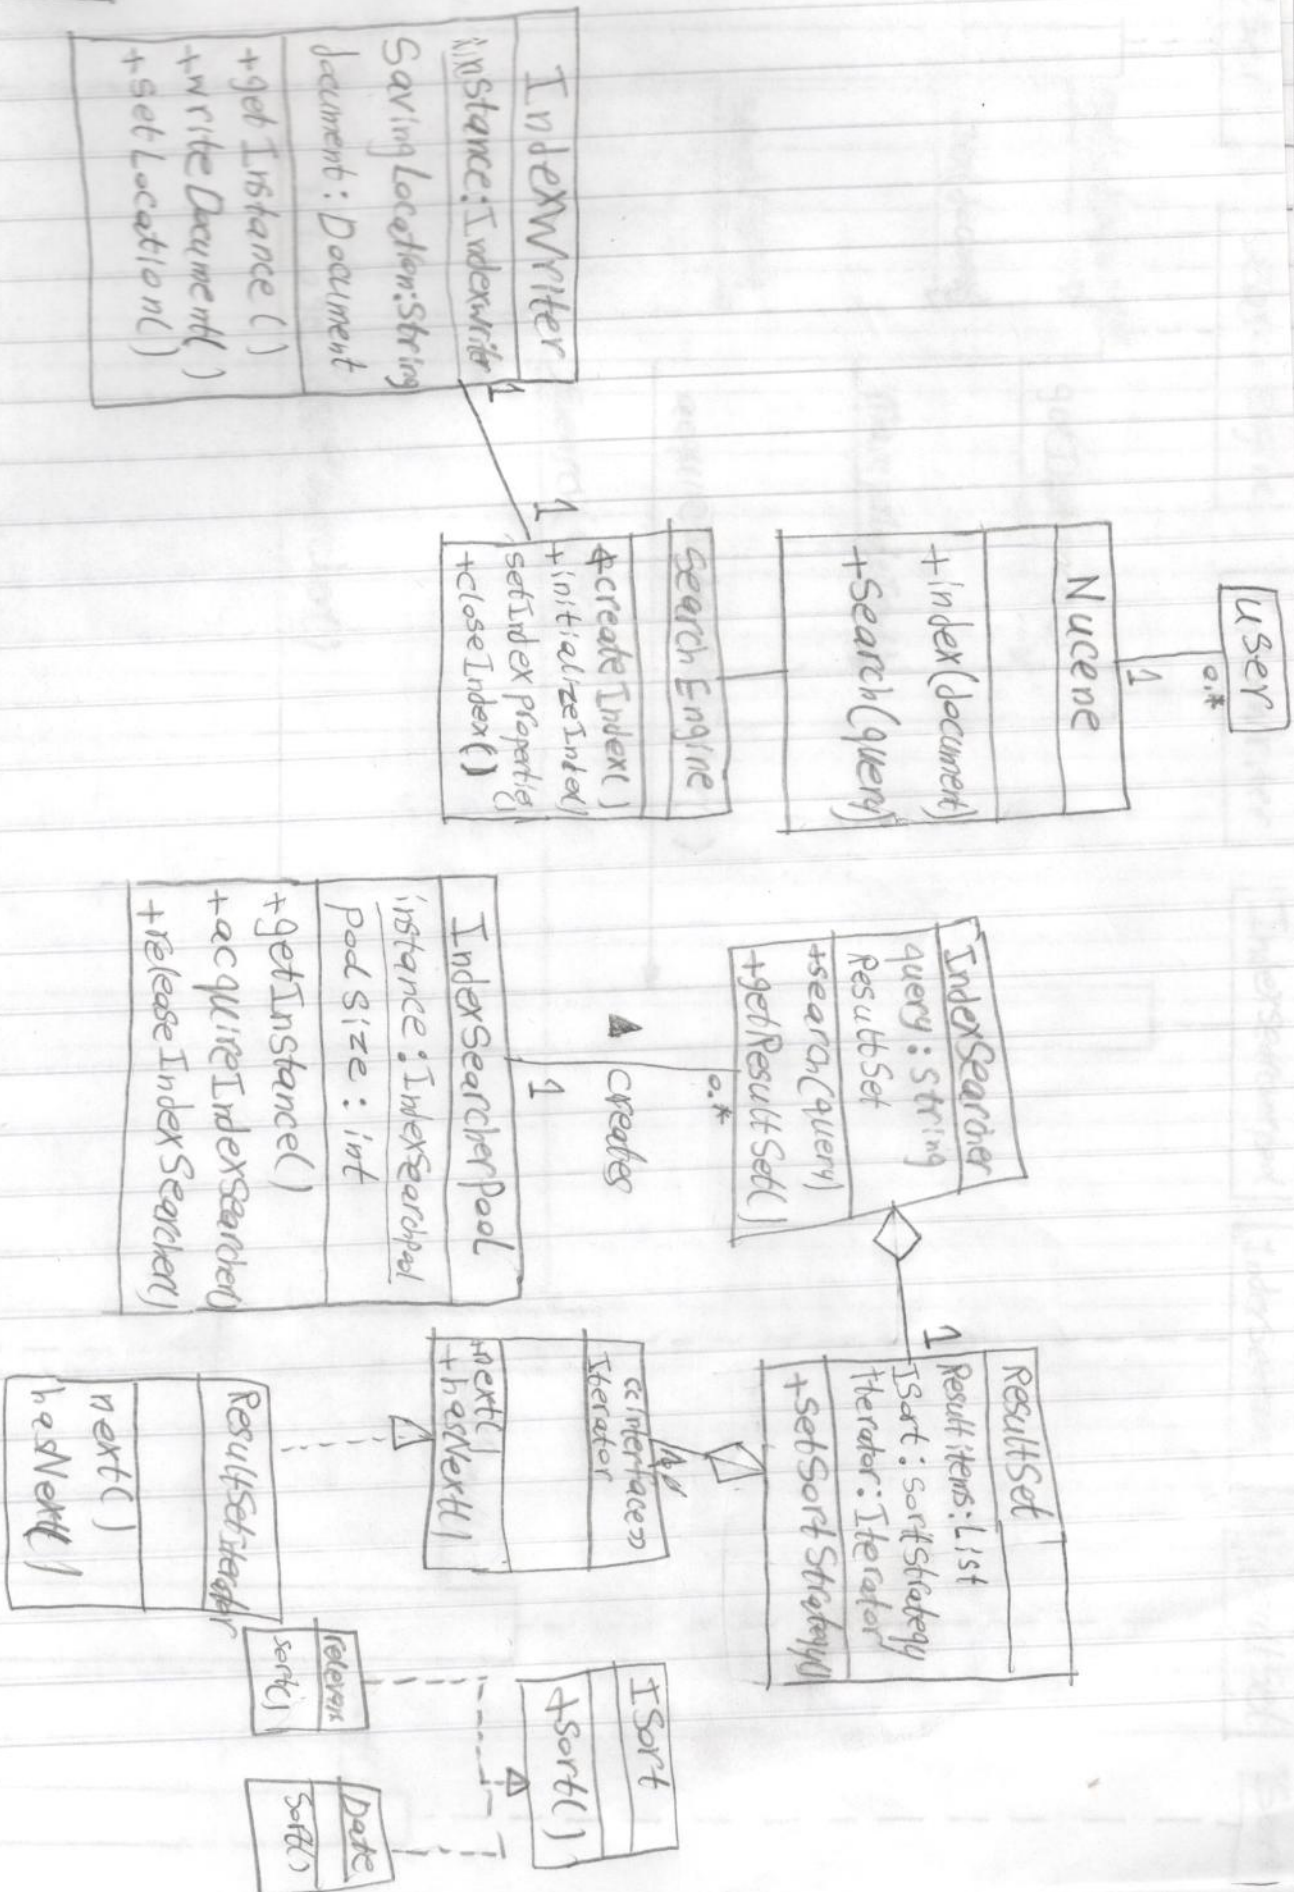 user
0.*
1
Nucene
+index(document)
+Search(query)
SearchEngine
+createIndex()
+initializeIndex()
setIndexProperties()
+closeIndex()
1
1
IndexWriter
instance:Indexwriter
SavingLocation:String
document:Document
+getInstance()
+writeDocument()
+setLocation()
IndexSearcher
query:String
ResultSet
+search(query)
+getResultSet()
0.*
creates
1
IndexSearcherPool
instance:IndexSearchPool
pool size:int
+getInstance()
+acquireIndexSearcher()
+releaseIndexSearcher()
1
ResultSet
Resultitems:List
ISort:SortStrategy
iterator:Iterator
+SetSortStrategy()
<<interface>>
Iterator
+next()
+hasNext()
ResultSetiterator
next()
hasNext()
ISort
+Sort()
sort()
Date
Sort()